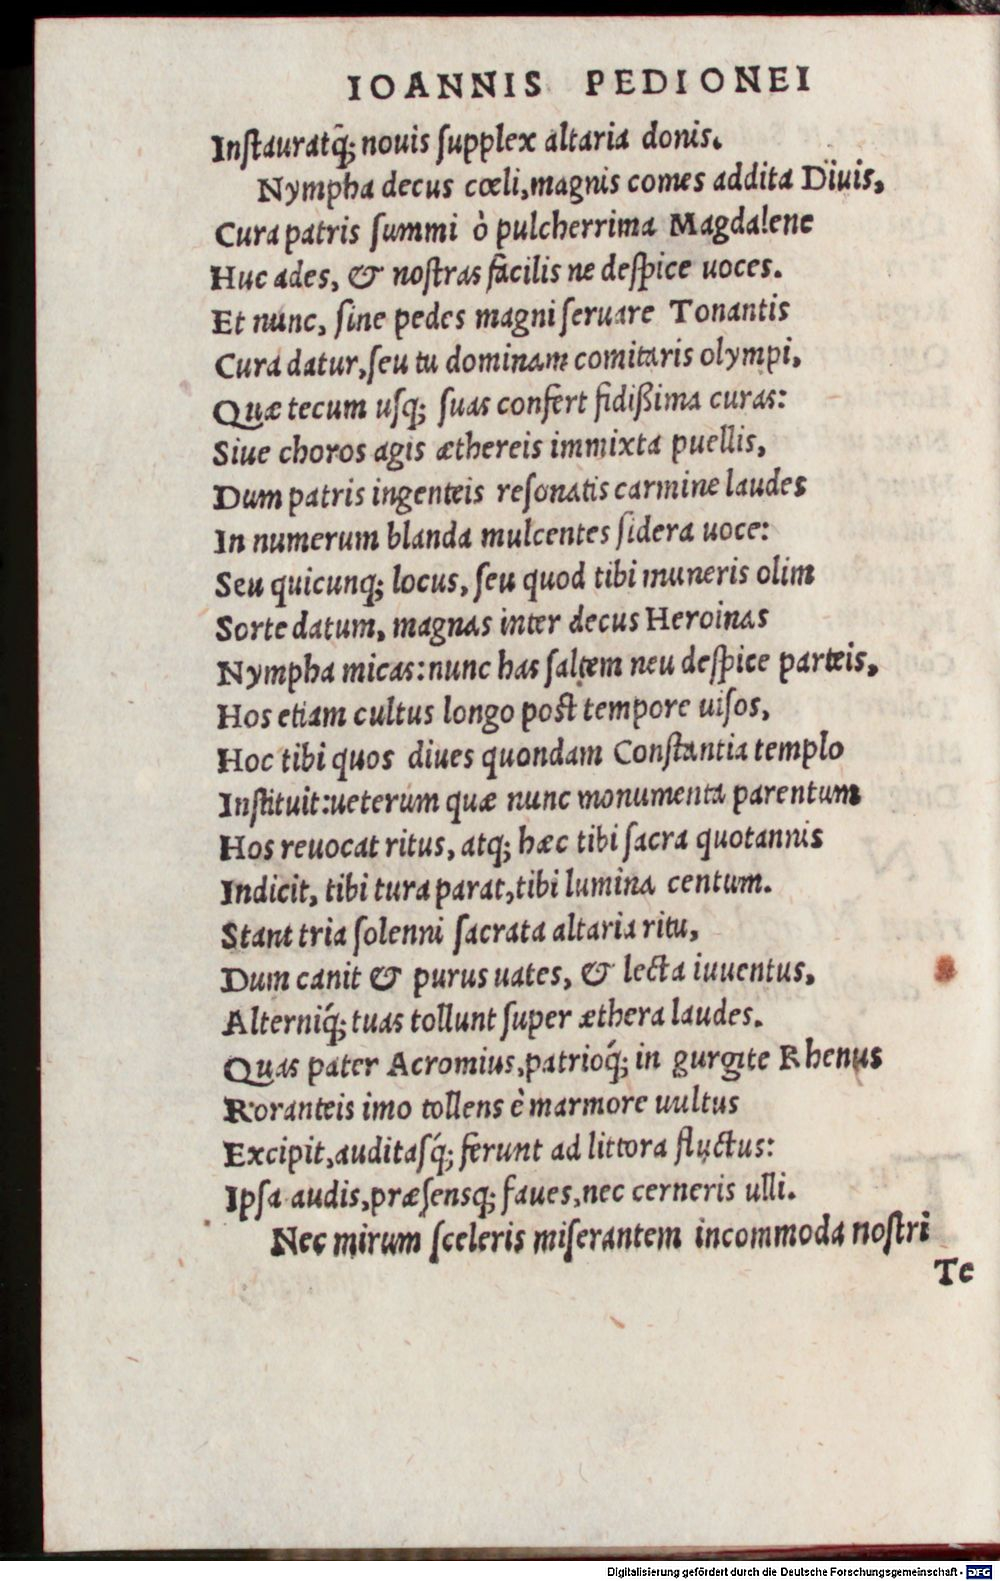 IOANNIS PEDIONEI
Inſtauratq̃; nouis ſupplex altaria donis.
Nympha decus cœli, magnis comes addita Diuis,
Cura patris ſummi ò pulcherrima Magdalene
Huc ades, & noſtras facilis ne deſpice uoces.
Et nunc, ſine pedes magni ſeruare Tonantis
Cura datur, ſeu tu dominam comitaris olympi,
Quæ tecum uſq; ſuas confert fidißima curas:
Siue choros agis æthereis immixta puellis,
Dum patris ingenteis reſonatis carmine laudes
In numerum blanda mulcentes ſidera uoce:
Seu quicunq; locus, ſeu quod tibi muneris olim
Sorte datum, magnas inter decus Heroinas
Nympha micas: nunc has ſaltem neu deſpice parteis,
Hos etiam cultus longo poſt tempore uiſos,
Hoc tibi quos diues quondam Conſtantia templo
Inſtituit: ueterum quæ nunc monumenta parentum
Hos reuocat ritus, atq; hæc tibi ſacra quotannis
Indicit, tibi tura parat, tibi lumina centum.
Stant tria ſolenni ſacrata altaria ritu,
Dum canit & purus uates, & lecta iuuentus,
Alterniq́; tuas tollunt ſuper æthera laudes.
Quas pater Acromius, patrioq́; in gurgite Rhenus
Roranteis imo tollens è marmore uultus
Excipit, auditaſq́; ferunt ad littora fluctus:
Ipſa audis, præſensq; faues, nec cerneris ulli.
Nec mirum ſceleris miſerantem incommoda noſtri
Te
Digitalisierung gefördert durch die Deutsche Forschungsgemeinschaft - DFG